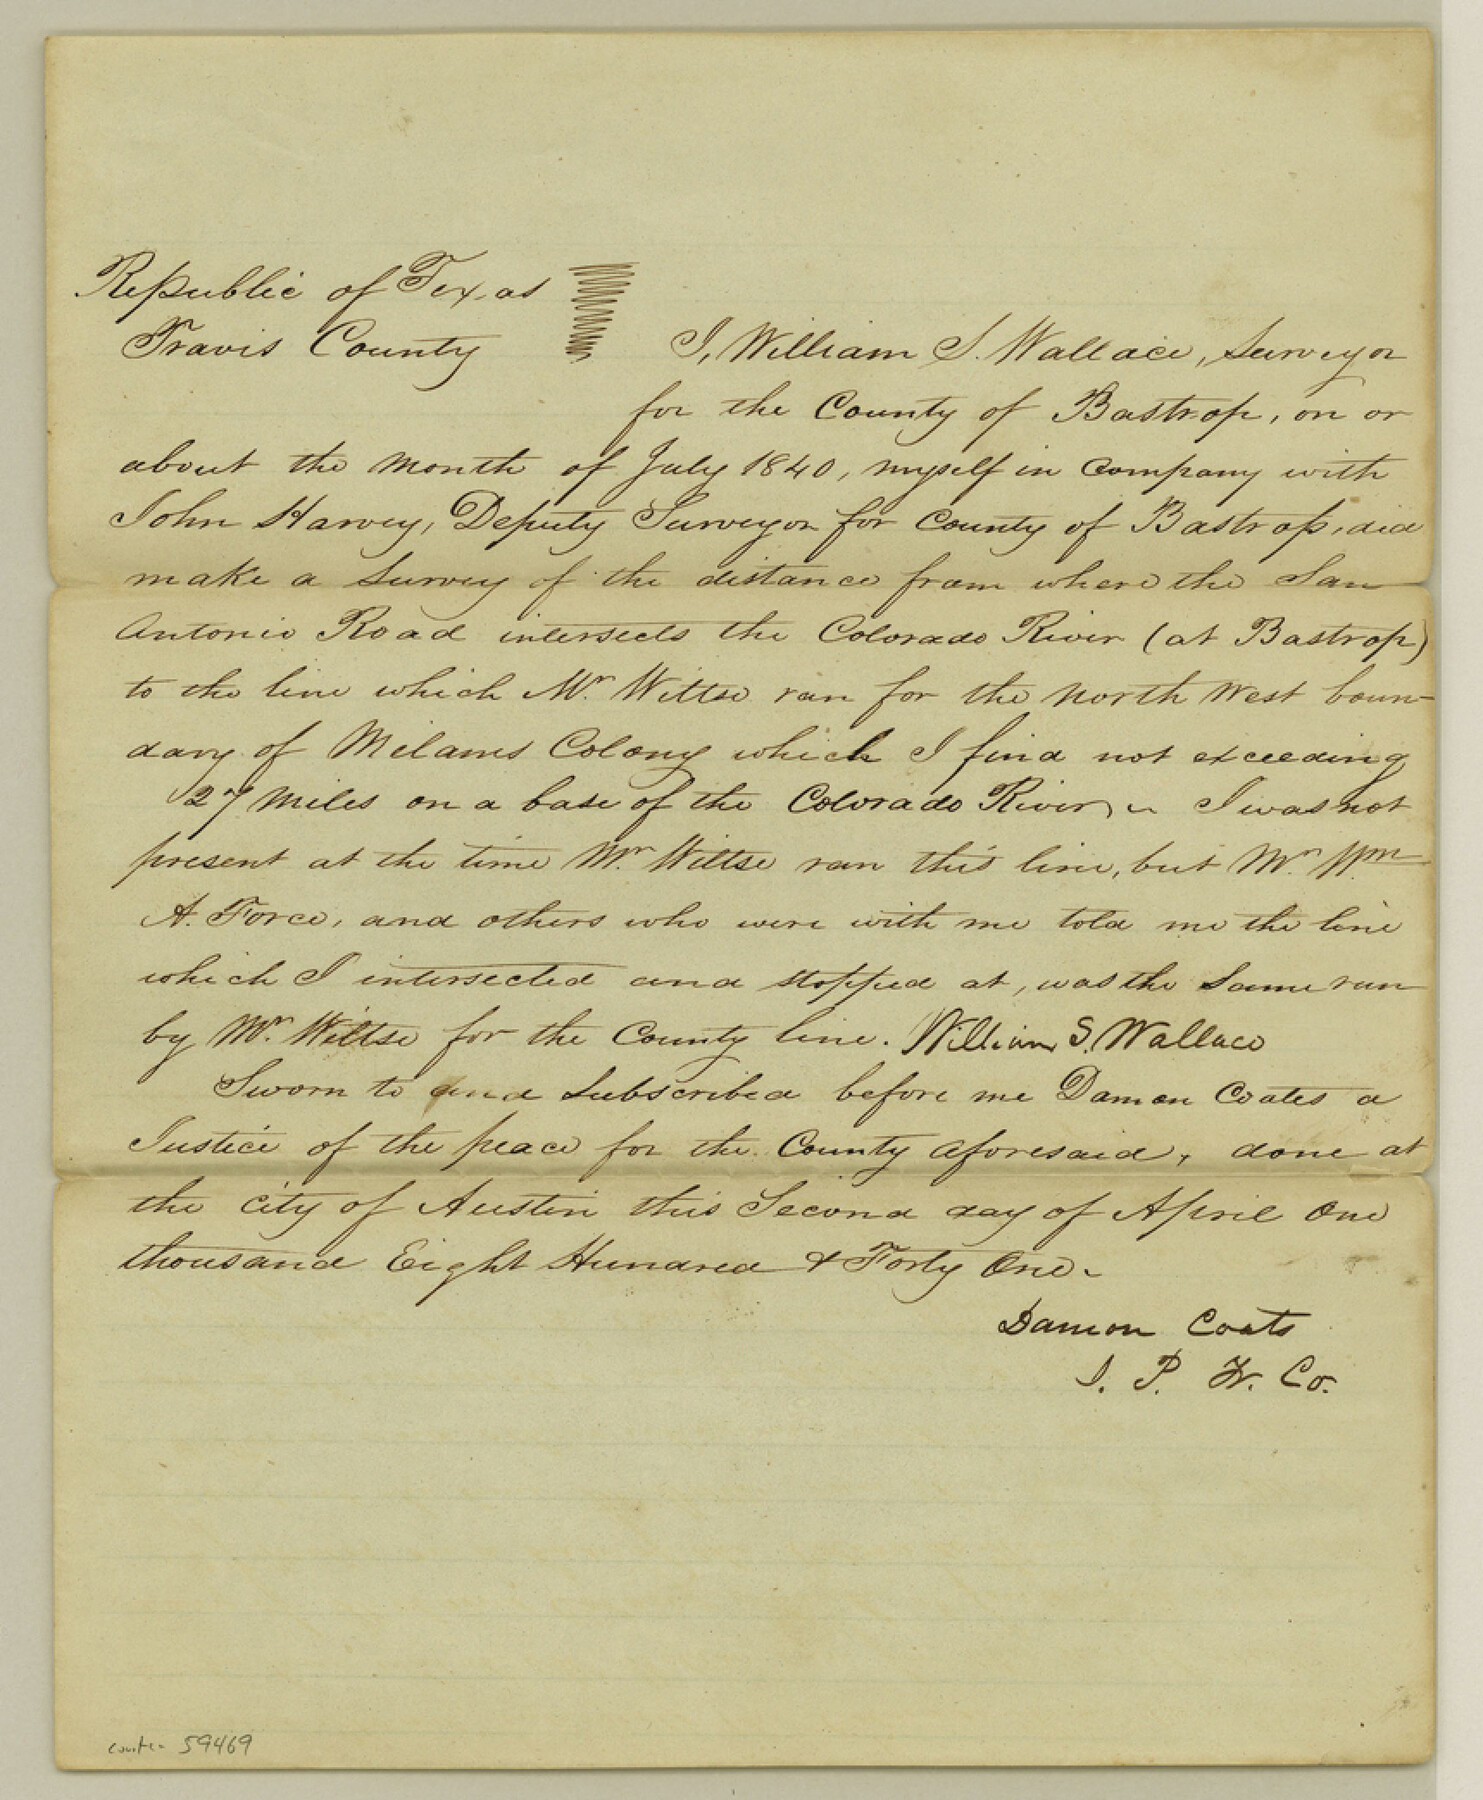 Republic of Texas
Travis County
I, William S. Wallace, Surveyor
for the County of Bastrop, on or
about the month of July 1840, myself in Company with
John Harvey, Deputy Surveyor for County of Bastrop, did
make a Survey of the distance from where the San
Antonio Road intersects the Colorado River (at Bastrop)
to the line which Mr. Wiltse ran for the North West boun-
dary of Milams Colony which I find not exceeding
27 Miles on a base of the Colorado River, I was not
present at the time Mr. Wiltse ran this line, but Mr. Wm
A. Force, and others who were with me told me the line
which I intersected and stopped at, was the Same run
by Mr. Wiltse for the County line. William S. Wallace
Sworn to and Subscribed before me Damon Coates a
Justice of the peace for the County aforesaid, done at
the City of Austin this Second day of April One
thousand Eight Hundred & Forty One.
Damon Coats
J. P. Tr. Co.
counter 59469